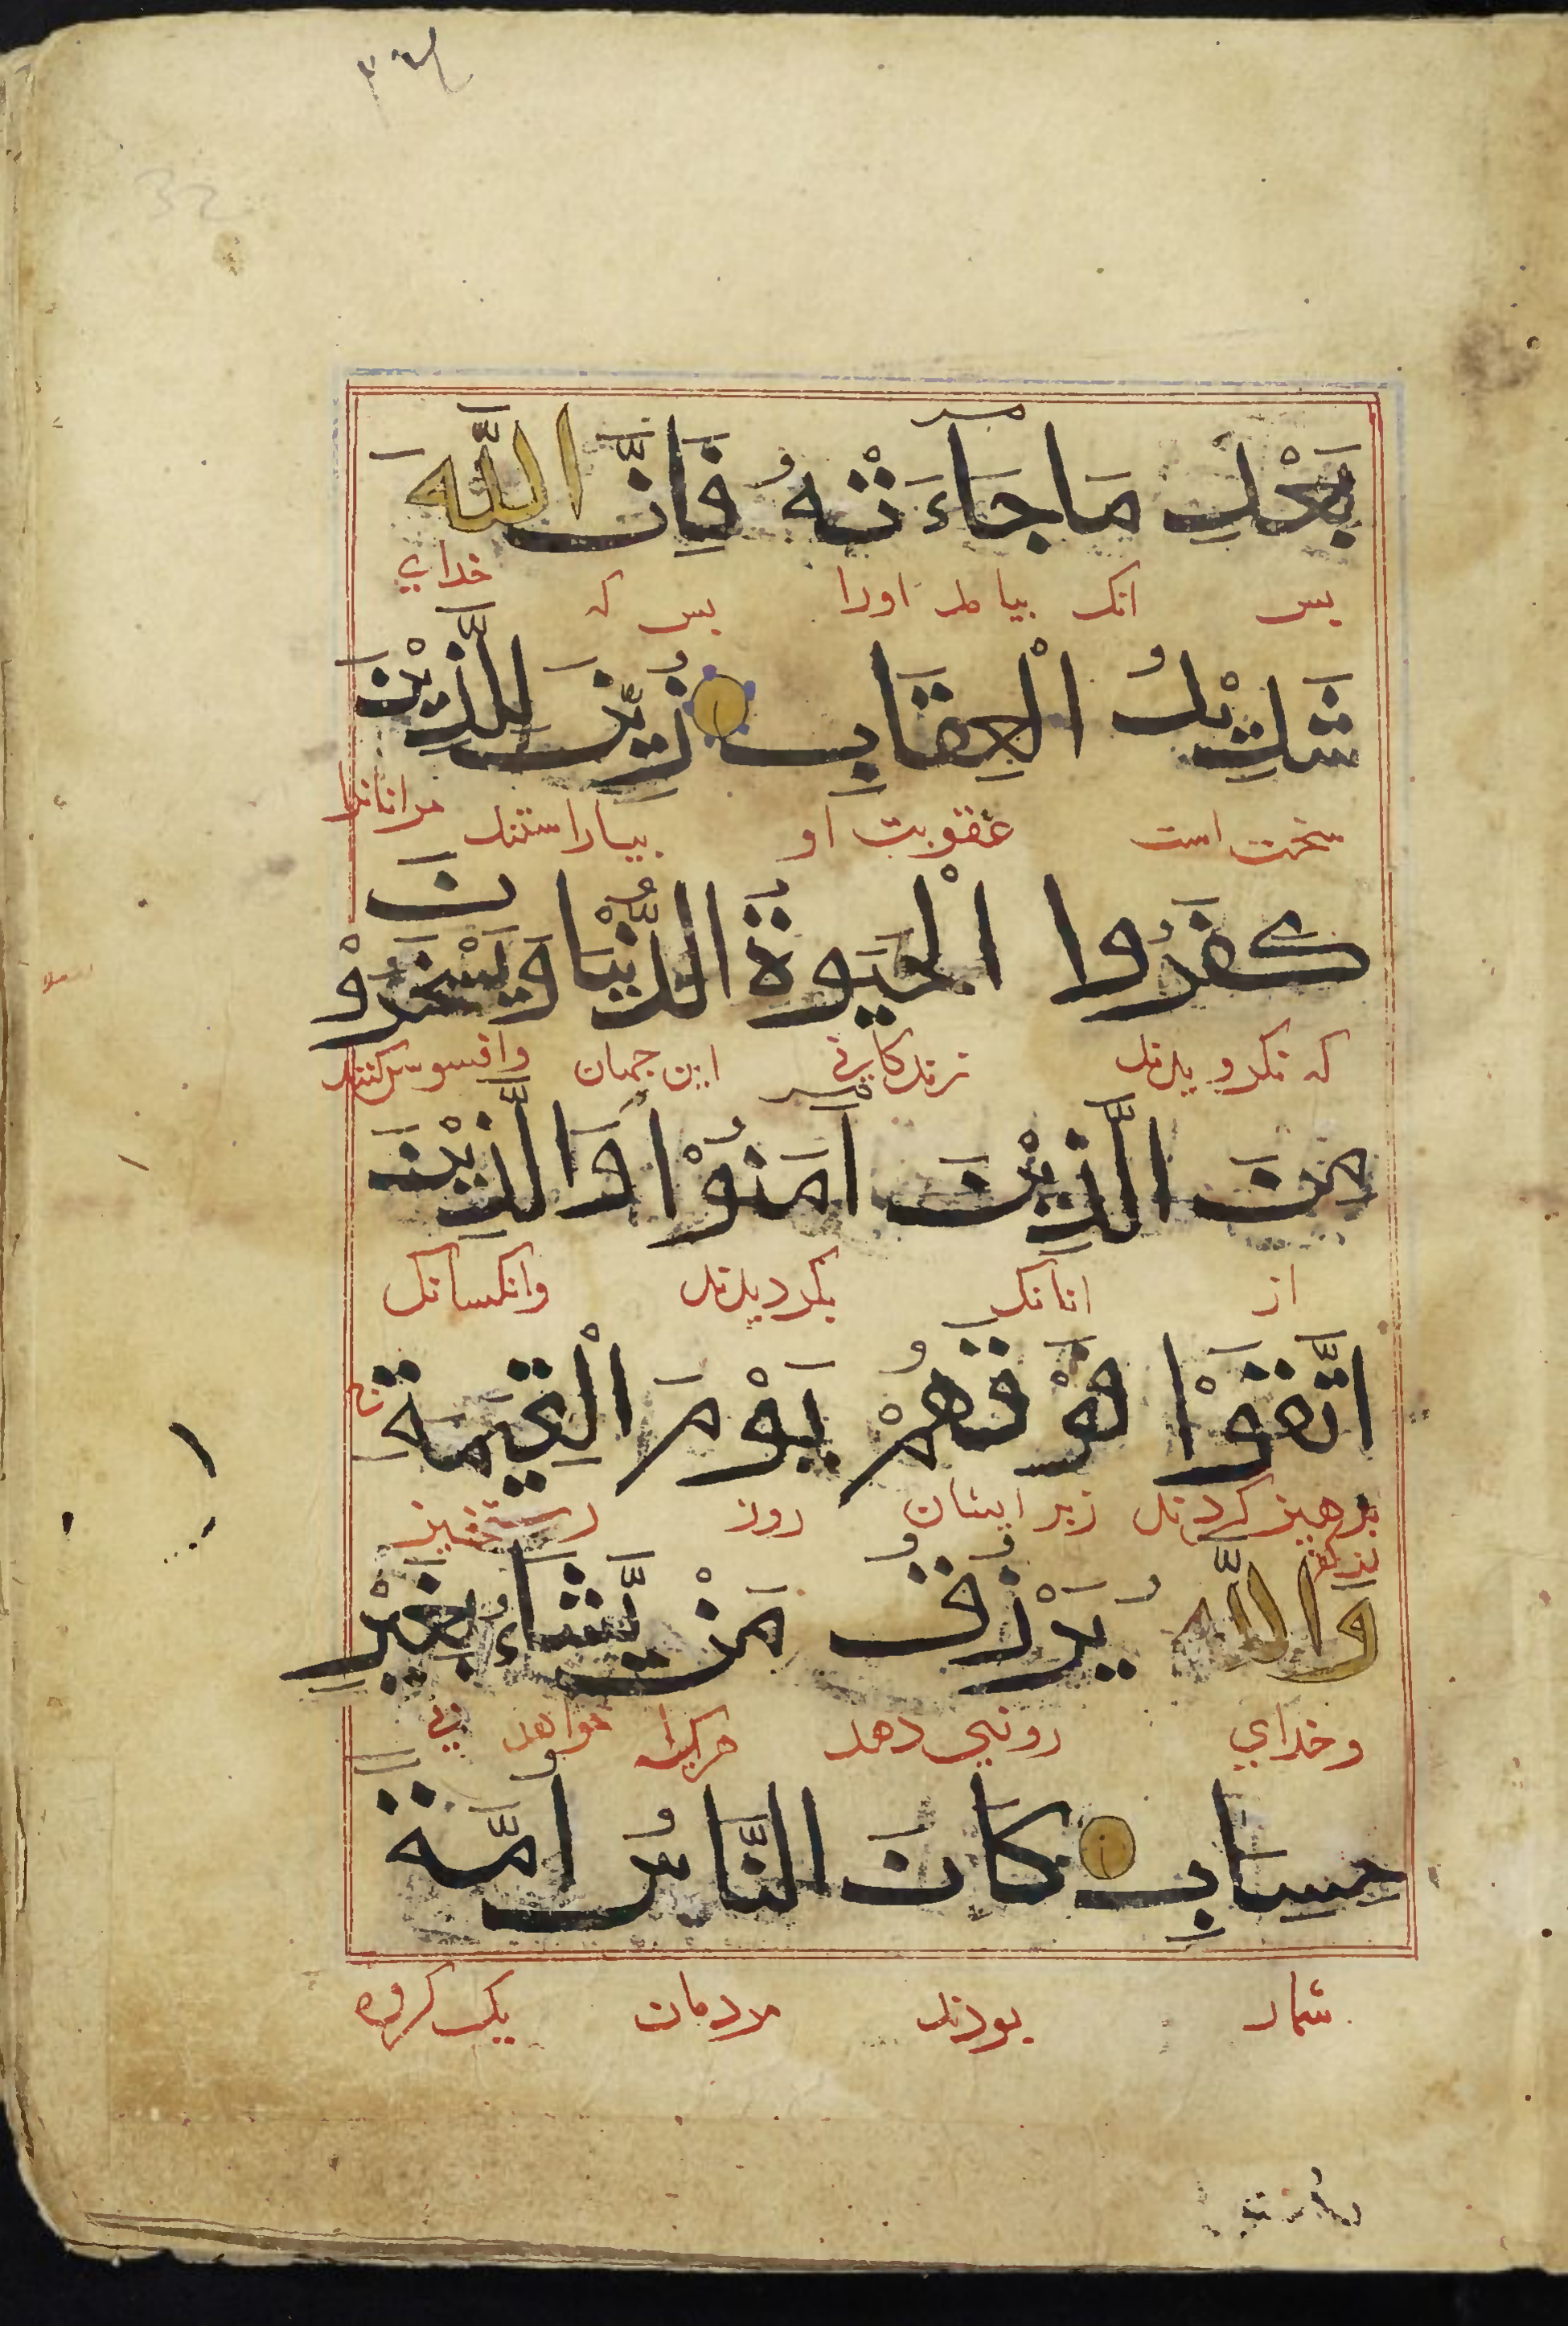 بَعْدِ مَا جَآءَتْهُ فَاِنَّ اللّٰهَ
پس انک بیامد اورا پس که خدای
شَدِيْدُ الْعِقَابِ زُيِّنَ لِلَّذِيْنَ
سخت است عقوبت او بیاراستند مرانانرا
كَفَرُوا الْحَيٰوةُ الدُّنْيَا وَيَسْخَرُوْنَ
که نکرویدند زندکانی این جهان وافسوس کنند
مِنَ الَّذِيْنَ اٰمَنُوْا وَالَّذِيْنَ
از انانک بکرویدند وانکسانک
اتَّقَوْا فَوْقَهُمْ يَوْمَ الْقِيٰمَةِ
پرهیز کردند زبر ایشان روز رستخیز
وَاللّٰهُ يَرْزُقُ مَنْ يَّشَآءُ بِغَيْرِ
وخدای روزی دهد هرکرا خواهد بی
حِسَابٍ كَانَ النَّاسُ اُمَّةً
شمار بودند مردمان یک کروه